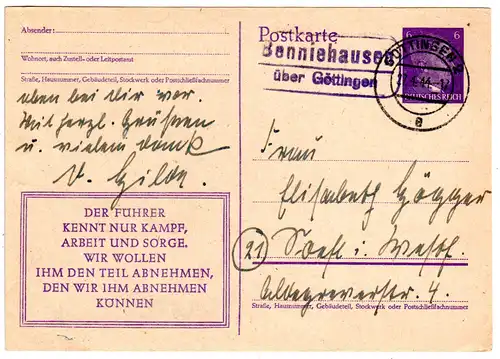 Absender:
Wohnort, auch Zustell- oder Leitpostamt
Straße, Hausnummer, Gebäudeteil, Stockwerk oder Postschließfachnummer
oben bei dir vor.
Mit herzl. Grüssen
u. vielem Dank
V. Gilda.
DER FÜHRER
KENNT NUR KAMPF,
ARBEIT UND SORGE.
WIR WOLLEN
IHM DEN TEIL ABNEHMEN,
DEN WIR IHM ABNEHMEN
KÖNNEN
Postkarte
6 6
DEUTSCHES REICH
Benniehausen
über Göttingen
GÖTTINGEN 2
44
e
Frau
Elisabeth
21 Soest i. Westf.
Aldegreverstr. 4.
Straße, Hausnummer, Gebäudeteil, Stockwerk oder Postschließfachnummer